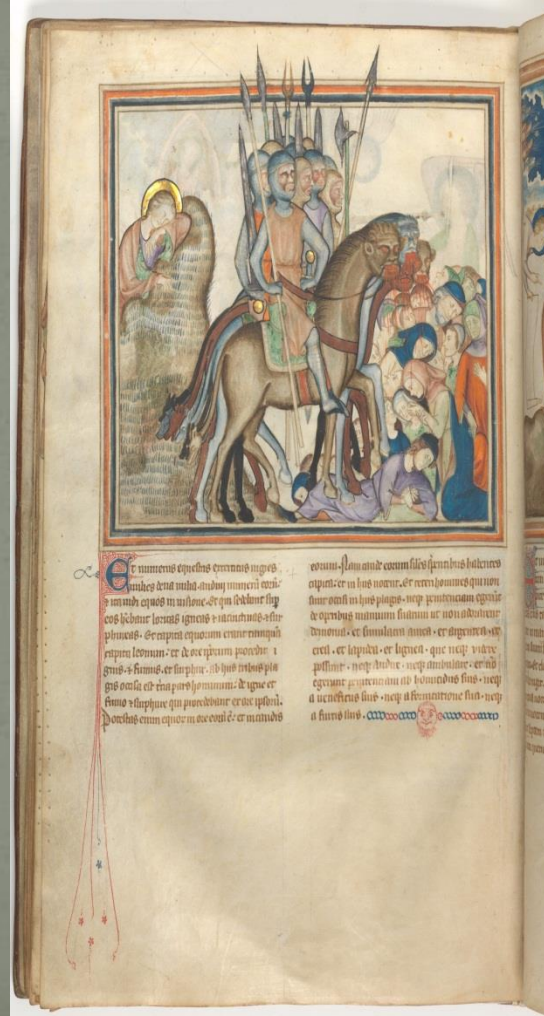 Et numerus equestris exercitus vigies
milies dena milia. audivi numerū eorū.
⁊ ita vidi equos in visione. et qui sedebant sup
eos hēbant loricas igneas ⁊ iacinctinas ⁊ sul
phureas. Et capita equorum erant tanquā
capita leonum. et de ore ipsorum procedit i
gnis. ⁊ fumus. et sulphur. ab hiis tribus pla
gis occisa est tercia pars hominum. de igne et
fumo ⁊ sulphure qui procedebant ex ore ipsorū.
Potestas enim equor̄ in ore eor̄ ē. et in caudis
eorum. Nam caude eorum similes serpentibus habentes
capita. et in hiis nocent. Et ceteri homines qui non
sunt occisi in hiis plagis. neqʒ penitenciam egerūt
de operibus manuum suarum ut non adorarent
demonia. et simulacra aurea. et argentea. et
erea. et lapidea. et lignea. que neqʒ videre
possunt. neqʒ audire. neqʒ ambulare. et nō
egerunt penitenciam ab homicidiis suis. neqʒ
a veneficiis suis. neqʒ a fornicatione sua. neqʒ
a furtis suis.